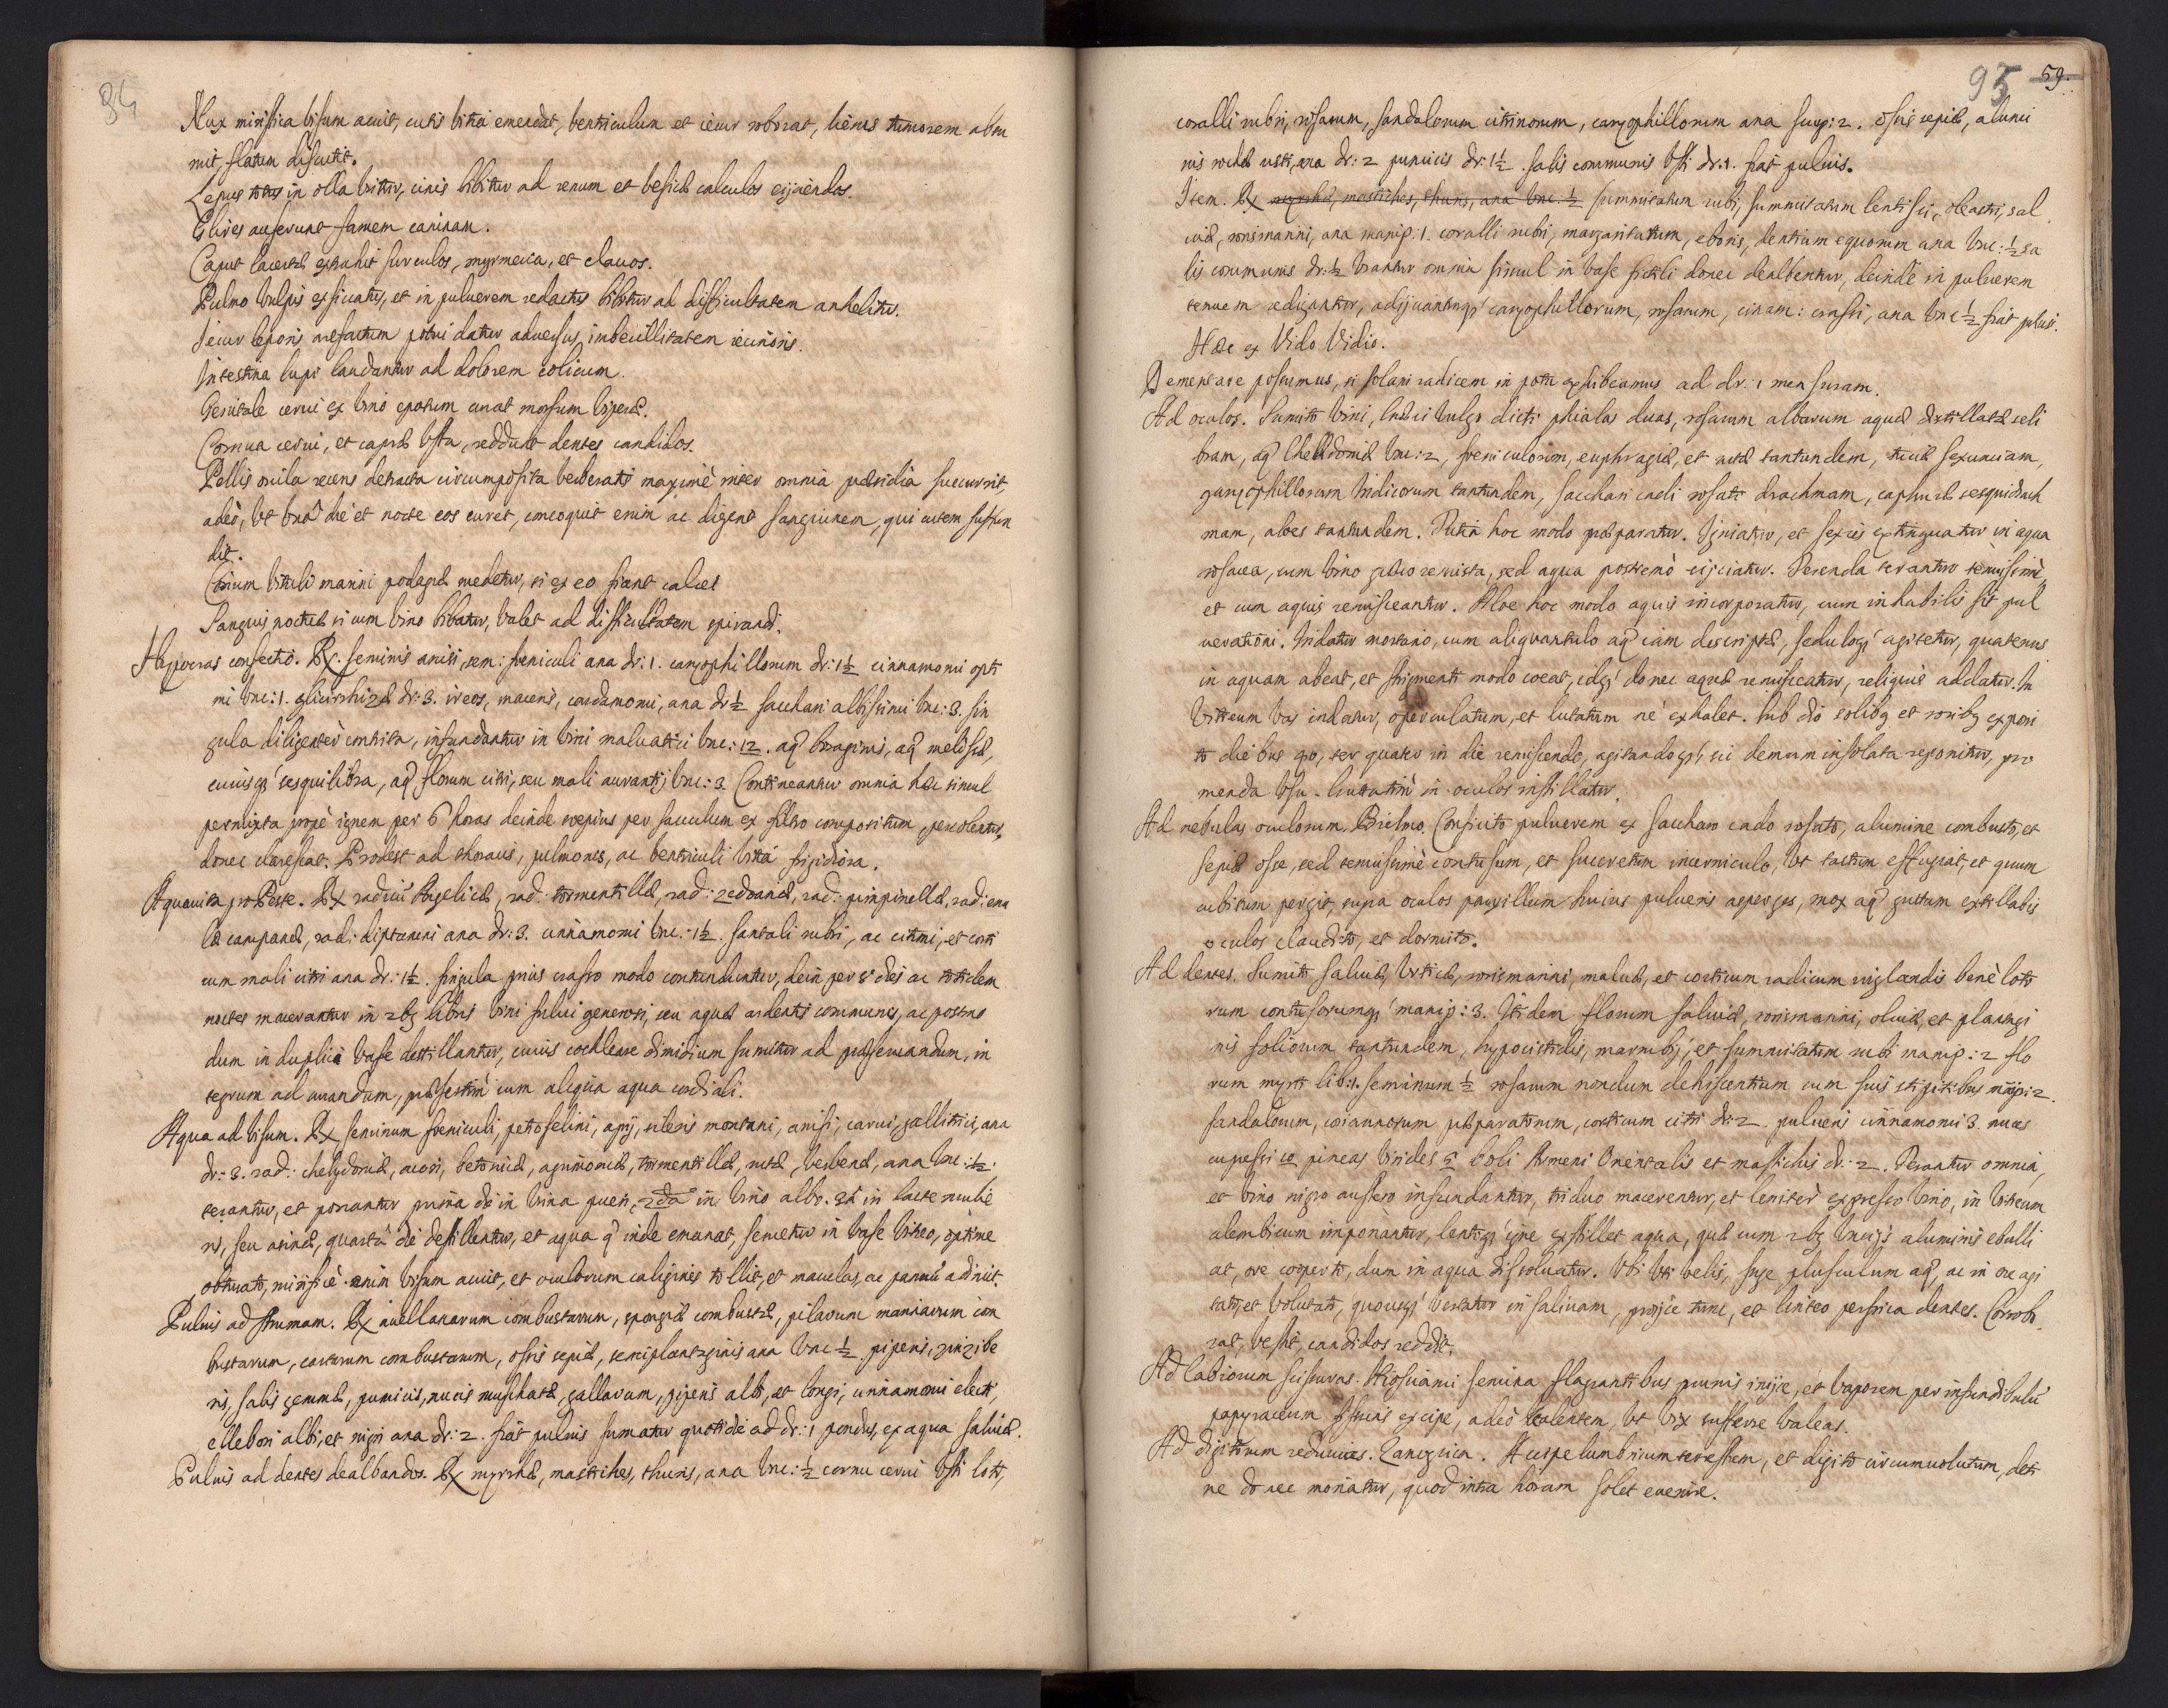 84
Nux miristica visum acuit, cutis vitia emendat, ventriculum et iecur roborat, lienis tumorem absu
mit, flatum discutit.
Lepus totus in olla uritur, cinis bibitur ad renum et vesicæ calculos eijciendos.
Glires auferunt famem caninam.
Caput lacertæ extrahit surculos, myrmecia, et clauos.
Pulmo Vulpis exsiccatus, et in puluerem redactus bibitur ad difficultatem anhelitus.
Iecur leporis arefactum potui datur aduersus imbecillitatem iecinoris.
Intestina lupi laudantur ad dolorem colicum.
Genitale cerui ex Vino epotum curat morsum Viperæ.
Cornua cerui, et capræ Vsta, reddunt dentes candidos.
Pellis ouila recens detracta circumposita verberatis maximè inter omnia præsidia succurrit,
adeò, Vt Vna die et nocte eos curet, concoquit enim ac digerit sanguinem, qui cutem suffun
dit.
Corium Vituli marini podagræ medetur, si ex eo fiant calcei
Sanguis noctuæ si cum Vino bibatur, valet ad difficultatem spirandi.
Hippocras confectio. Rx. seminis anisi, sem: foeniculi ana dr: 1. caryophillorum dr: 1½ cinnamomi opti
mi Vnc: 1. glicirrhizæ dr: 3. ireos, maceris, cardamomi, ana dr ½ sacchari albissimi Vnc: 3. sin
gula diligenter contrita, infundantur in Vini maluatici Vnc: 12. aq̃ borraginis, aq̃ melissæ,
cuiusq; sesquilibra, aq̃ florum citri, seu mali aurantij Vnc: 3. Contineantur omnia hæc simul
permixta propè ignem per 6 horas deinde sæpius per sacculum ex filtro compositum, percolentur,
donec clarescat. Prodest ad thoracis, pulmonis, ac ventriculi Vitia frigidiora.
Aquauita pro Peste. Rx radicũ Angelicæ, rad: tormentillæ, rad: zedoariæ, rad: pimpinellæ, rad: enu
læ campanæ, rad: diptamni ana dr: 3. cinnamomi Vnc: 1½. santali rubri, ac citrini, et corti
cum mali citri ana dr: 1½. singula prius crasso modo contunduntur, dein per 8 dies ac totidem
noctes macerantur in 2bꝫ libris Vini fului generosi, seu aquæ ardentis communis, ac postmo
dum in duplici Vase distillantur, cuius cochleare dimidium sumitur ad præseruandum, in
tegrum ad curandum, præsertim cum aliqua aqua cordiali.
Aqua ad Visum. Rx seminum foeniculi, petroselini, apij, sileris montani, anisi, carui, gallitrici, ana
dr: 3. rad: chelydoniæ, acori, betonicæ, agrimoniæ, tormentillæ, rutæ, verbenæ, ana Vnc: ½.
terantur, et ponantur prima die in Vrina pueri, 2da in Vino albo. 3a in lacte mulie
ris, seu asinæ, quarta die destillentur, et aqua q̃ inde emanat, seruetur in Vase Vitreo, optime
obturato, mirificè enim Visum acuit, et oculorum caligines tollit, et maculas, ac pannũ adimit.
Puluis ad strumam. Rx auellanarum combustarum, spongiæ combustæ, pilarum marinarum com
bustarum, cartarum combustarum, ossis sepiæ, sem: plantaginis ana Vnc ½ piperis, zinzibe
ris, salis gemmæ, pumicis, nucis muschatæ, gallarum, piperis albi, et longi, cinnamomi electi,
ellebori albi, et nigri ana dr: 2. fiat puluis sumatur quotidie ad dr: 1 pondus, ex aqua saluiæ.
Puluis ad dentes dealbandos. Rx myrrhæ, mastiches, thuris, ana Vnc: ½ cornu cerui Vsti loti,
95 59.
coralli rubri, rosarum, sandalorum citrinorum, caryophillorum ana scrup: 2. ossis sepiæ, alumi
nis rochæ usti, ana dr: 2 pumicis dr: 1½. salis communis Vsti dr: 1. fiat puluis.
Item. Rx myrrhæ, mastiches, thuris, ana Vnc: ½ summitatum rubi, summitatum lentisci, oleastri, sal
uiæ, rorismarini, ana manip: 1. coralli rubri, margaritarum, eboris, dentium equorum ana Vnc: ½ sa
lis communis dr: ½ Vrantur omnia simul in Vase fictili donec dealbentur, deinde in puluerem
tenuem redigantur, adijciantq; caryophillorum, rosarum, cinam: crassi, ana Vnc ½ fiat pului.
Hæc ex Vido Vidio.
Dementare possumus, si solani radicem in potu exhibeamus ad dr: 1 mensuram.
Ad oculos. Sumito Vini, Indici Vulgo dicti phialas duas, rosarum albarum aquæ distillatæ seli
bram, aq̃ Chelidoniæ Vnc: 2, foeniculorum, euphragiæ, et rutæ tantundem, tuciæ sexunciam,
garyophillorum Indicorum tantundem, sacchari cadi rosati drachmam, caphuræ sesquidrach
mam, aloes tantundem. Tutia hoc modo præparatur. Igniatur, et sexies extinguatur in aqua
rosacea, cum Vino græco remista, sed aqua postremò eijciatur. Terenda terantur tenuissimè,
et cum aquis remisceantur. Aloe hoc modo aquis incorporatur, cum inhabilis sit pul
uerationi. Indatur mortario, cum aliquantulo aq̃ iam descriptæ, seduloq; agitetur, quatenus
in aquam abeat, et strigmenti modo coeat, idq; donec aquæ remisceatur, reliquis addatur. In
Vitreum Vas indatur, operculatum, et lutatum ne exhalet. Sub dio solibꝫ et roribꝫ exponi
to diebus 40, ter quater in die remiscendo, agitandoq;, sic demum insolata reponitur, pro
menda Vsu. Guttatim in oculos instillatur.
Ad nebulas oculorum. Brielmo. Conficito puluerem ex Saccharo cado rosato, alumine combusto, et
sepiæ osse, sed tenuissimè contusum, et succretum incerniculo, Vt tactum effugiat, et quum
cubitum pergis, supra oculos pauxillum huius pulueris asperges, mox aq̃ guttam extillabis
oculos claudito, et dormito.
Ad dentes. Sumito saluiæ, Vrticæ, rorismarini, maluæ, et corticum radicum iuglandis benè loto
rum contusorumq; manip: 3. Itidem florum saluiæ, rorismarini, oliuæ, et plantagi
nis foliorum tantundem, hypocistidis, marrubij, et summitatum rubi manip: 2 flo
rum myrti lib: 1. seminum ½ rosarum nondum dehiscentium cum suis stipitibus mãip: 2.
sandalorum, coriandrorum præparatorum, corticum citri dr: 2. pulueris cinnamomi 3. nuces
cupressi 10 pineas Virides 5 boli Armeni Orientalis et mastichis dr: 2. Terantur omnia,
et Vino nigro austero infundantur, triduo macerentur, et leniter expresso Vino, in Vitreum
alembicum imponantur, lentoq; igne exstillet aqua, quæ cum 2bꝫ Vncijs aluminis ebulli
at, ore cooperto, dum in aqua dissoluatur. Vbi Vti velis, suge plusculum aq̃, ac in ore agi
tato, et Volutato, quousq; Vertatur in saliuam, projice tunc, et linteo perfrica dentes. Corrobo
rat, vestit, candidos reddit.
Ad labiorum scissuras. Hiosciami semina flagrantibus prunis inijce, et Vaporem per infundibulũ
papyraceum fissuris excipe, adeò calentem, Vt Vix sufferre valeas.
Ad digitorum reduuias. Langsica. Accipe lumbricum terrestrem, et digito circumuolutum, deti
ne donec moriatur, quod intra horam solet euenire.